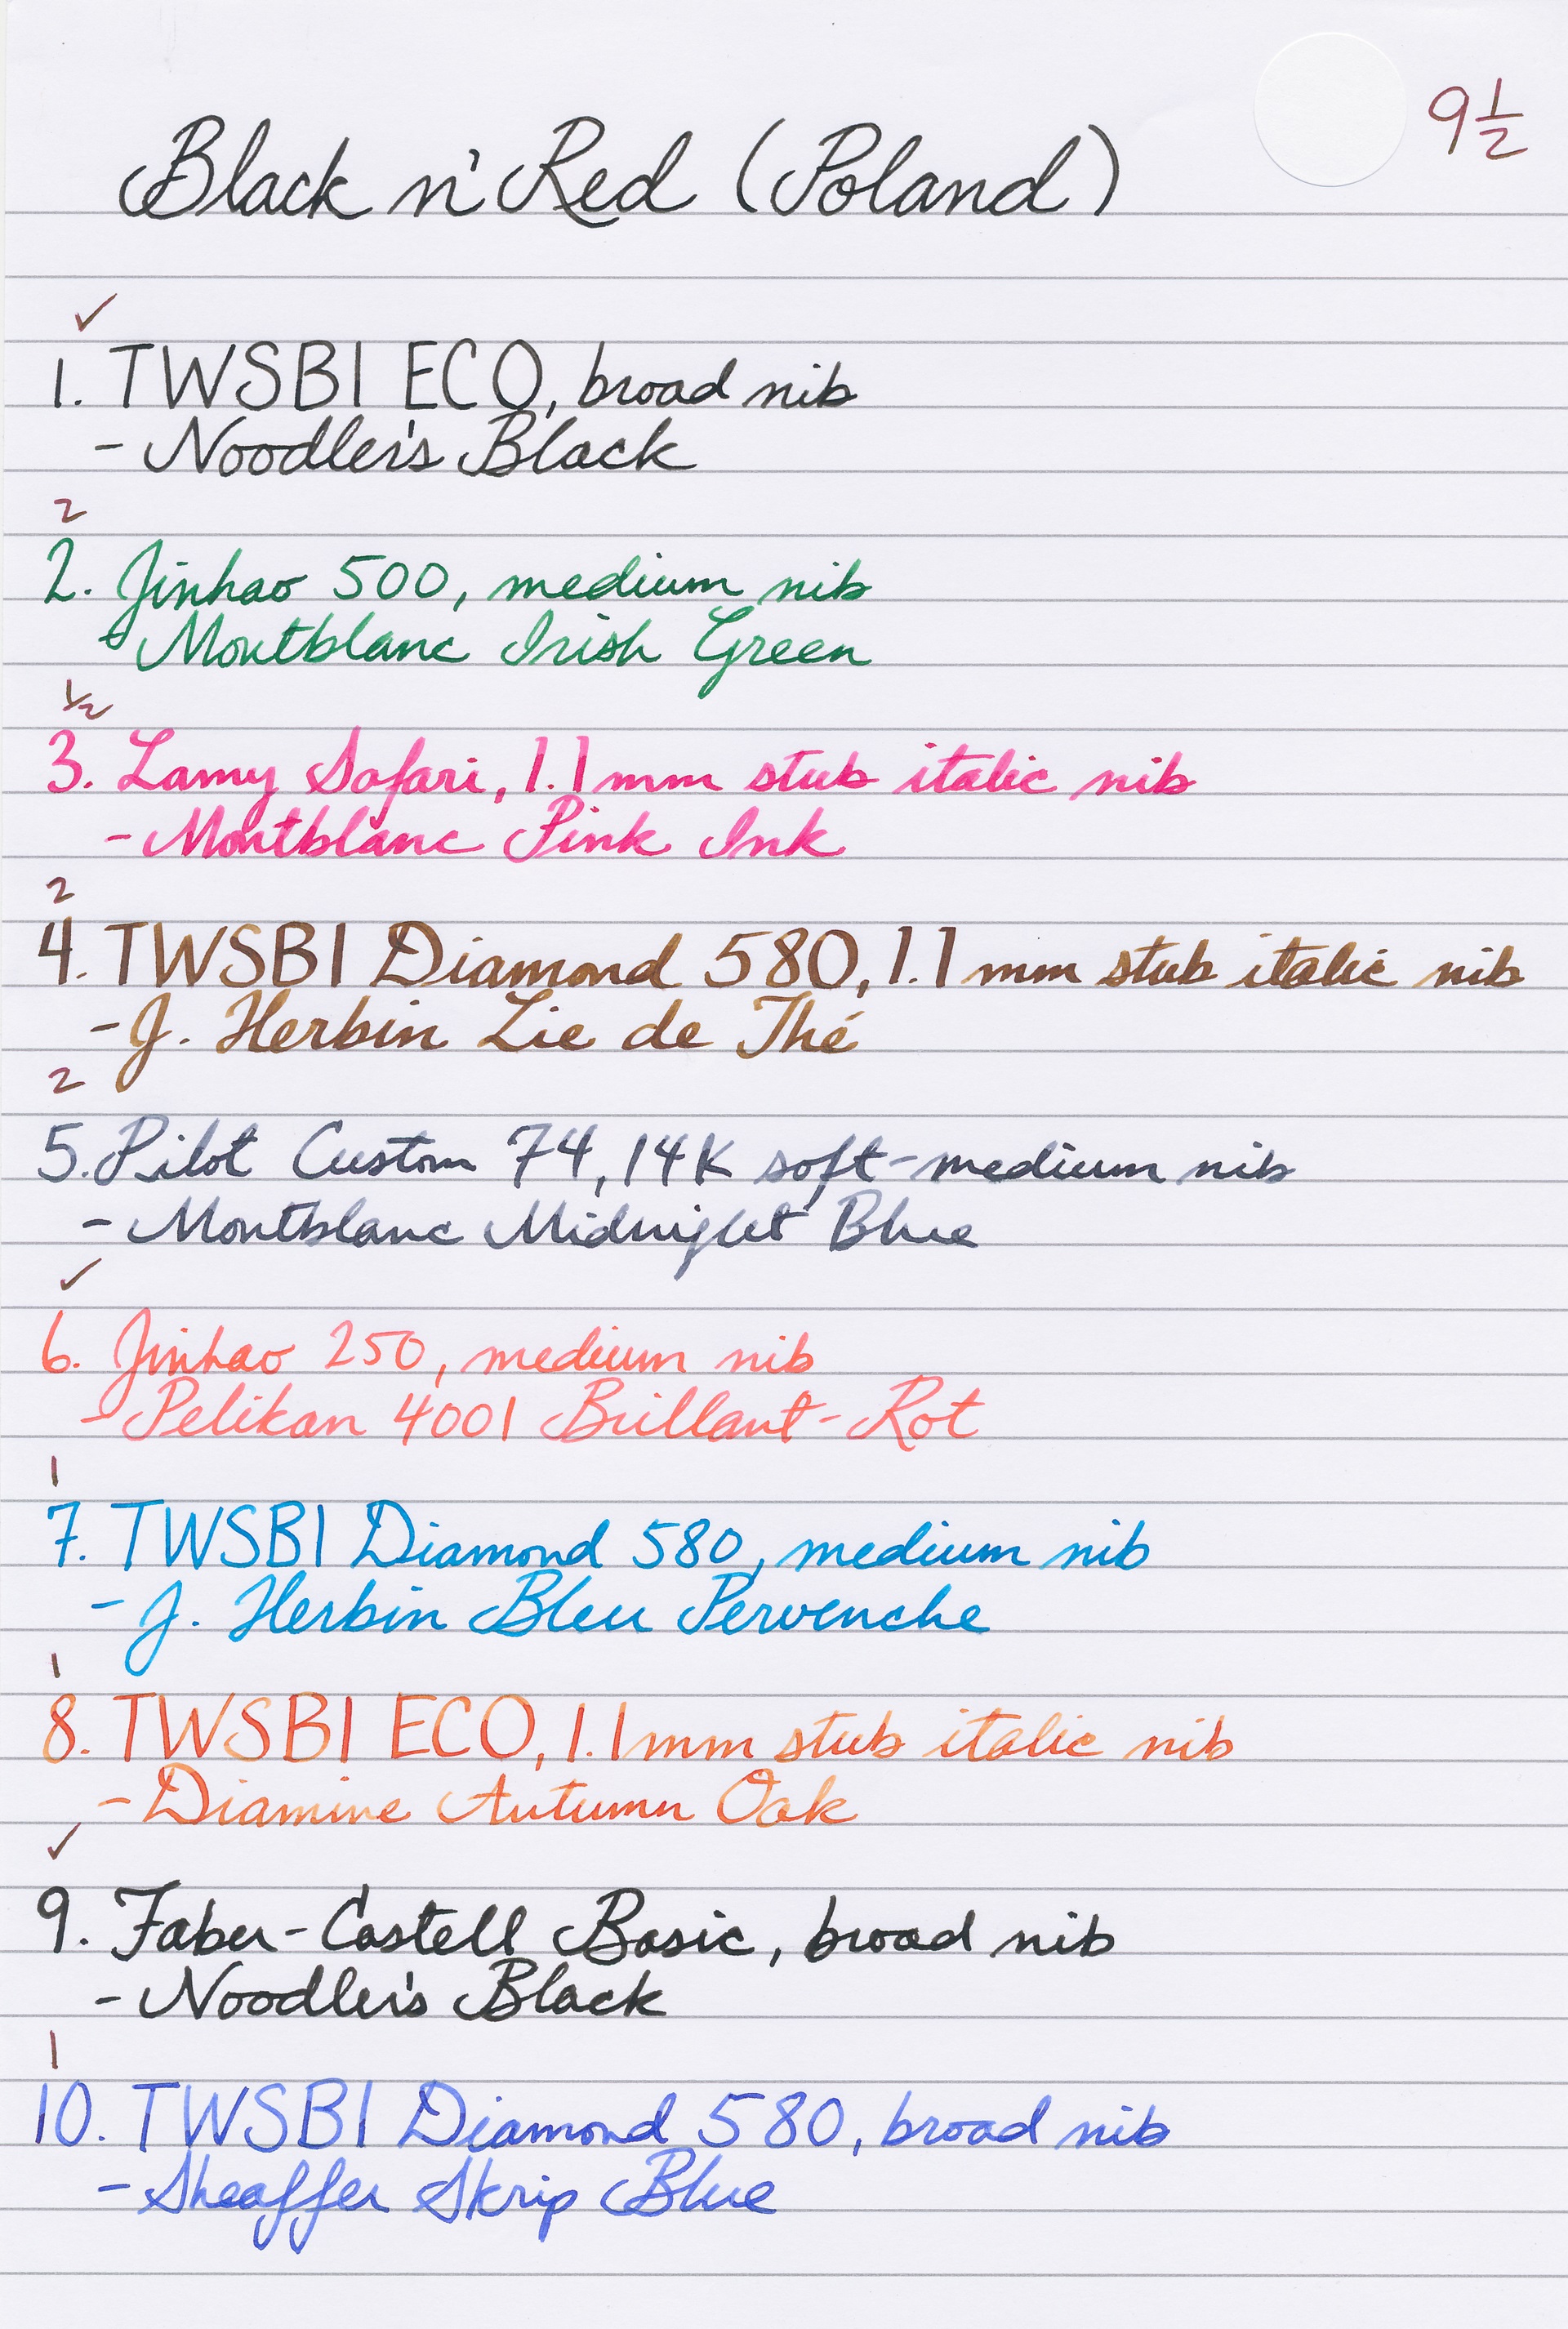 9 1/2
Black n' Red (Poland)
✓
1. TWSBI ECO, broad nib
- Noodler's Black
2
2. Jinhao 500, medium nib
- Montblanc Irish Green
1/2
3. Lamy Safari, 1.1mm stub italic nib
- Montblanc Pink Ink
2
4. TWSBI Diamond 580, 1.1mm stub italic nib
- J. Herbin Lie de Thé
2
5. Pilot Custom 74, 14K soft-medium nib
- Montblanc Midnight Blue
✓
6. Jinhao 250, medium nib
- Pelikan 4001 Brillant-Rot
1
7. TWSBI Diamond 580, medium nib
- J. Herbin Bleu Pervenche
1
8. TWSBI ECO, 1.1mm stub italic nib
- Diamine Autumn Oak
✓
9. Faber-Castell Basic, broad nib
- Noodler's Black
1
10. TWSBI Diamond 580, broad nib
- Sheaffer Skrip Blue